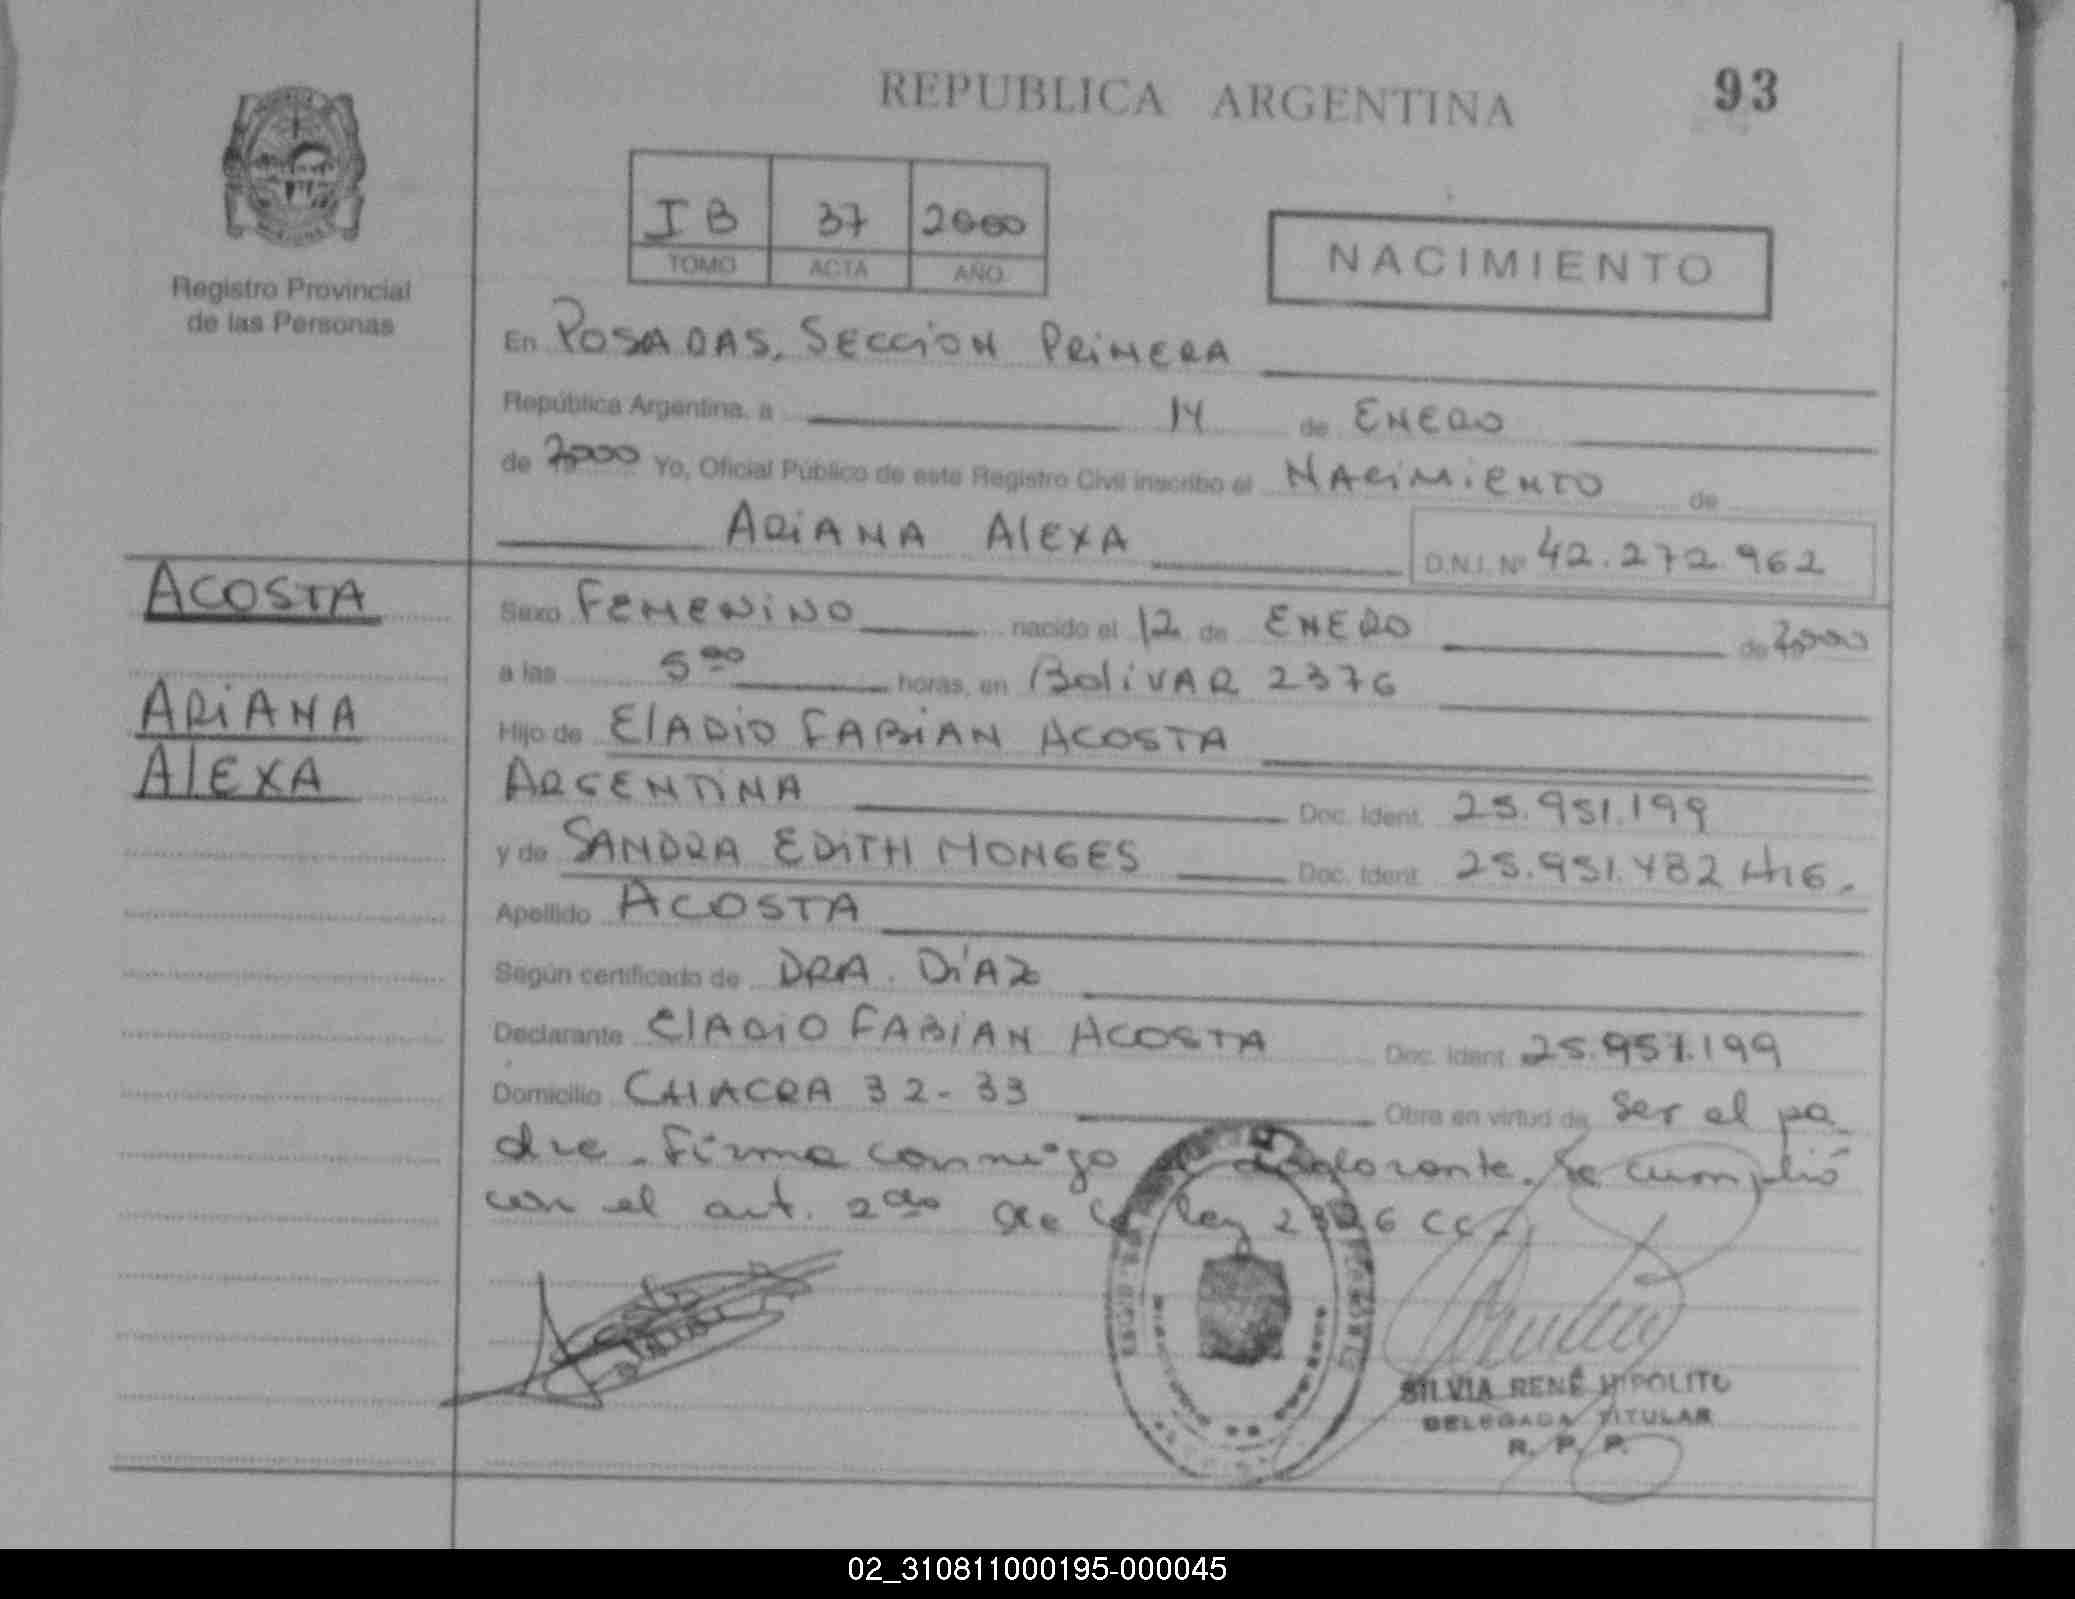 REPUBLICA ARGENTINA
93
I B 37 2000
TOMO ACTA AÑO
NACIMIENTO
Registro Provincial
de las Personas
En POSADAS, SECCION PRIMERA
República Argentina, a 14 de ENERO
de 2000 Yo, Oficial Público de este Registro Civil inscribo el NACIMIENTO de
ARIANA ALEXA D.N.I. Nº 42.272.962
ACOSTA
ARIANA
ALEXA
Sexo FEMENINO nacido el 12 de ENERO de 2000
a las 5 00 horas, en BOLIVAR 2376
Hijo de ELADIO FABIAN ACOSTA
ARGENTINA Doc. Ident. 25.951.199
y de SANDRA EDITH MONGES Doc. Ident. 25.951.482
Apellido ACOSTA
Según certificado de DRA. DÍAZ
Declarante ELADIO FABIAN ACOSTA Doc. Ident. 25.951.199
Domicilio CHACRA 32-33 Obra en virtud de ser el pa
dre. Firma conmigo Se cumplió
con el art. 2do de la ley
SILVIA RENÉ HIPOLITO
DELEGADA TITULAR
R. P. P.
02_310811000195-000045